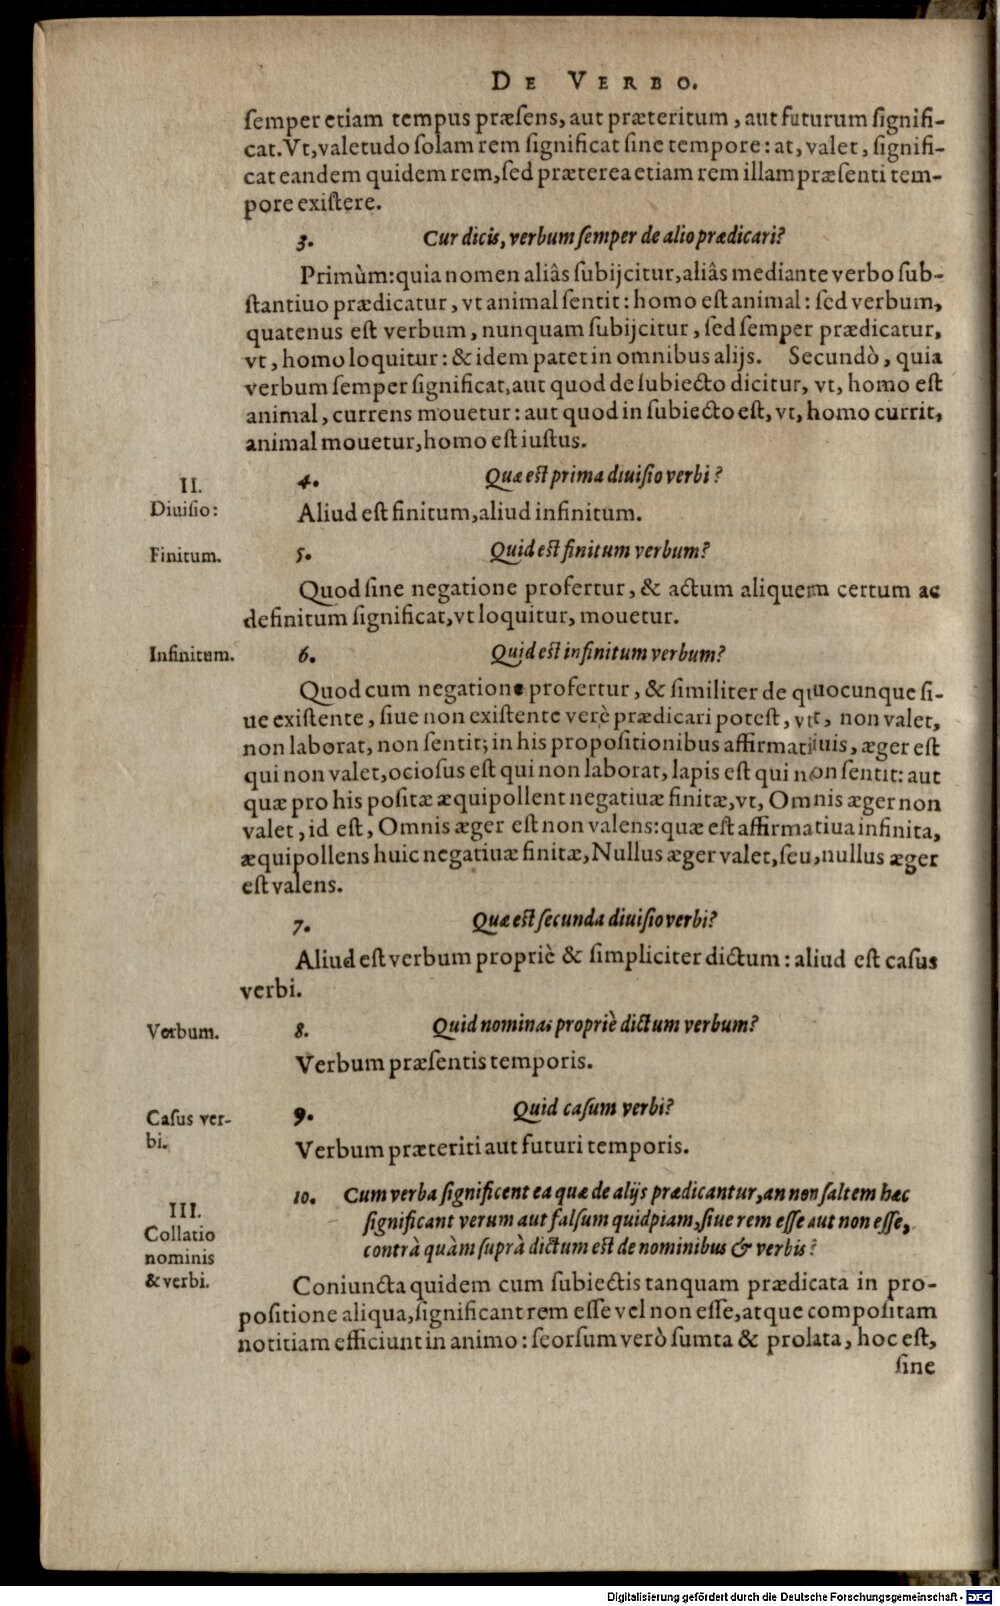 DE VERBO.
semper etiam tempus præsens, aut præteritum, aut futurum signifi-
cat. Vt, valetudo solam rem significat sine tempore: at, valet, signifi-
cat eandem quidem rem, sed præterea etiam rem illam præsenti tem-
pore existere.
3. Cur dicis, verbum semper de alio prædicari?
Primùm: quia nomen aliâs subijcitur, aliâs mediante verbo sub-
stantiuo prædicatur, vt animal sentit: homo est animal: sed verbum,
quatenus est verbum, nunquam subijcitur, sed semper prædicatur,
vt, homo loquitur: & idem patet in omnibus alijs. Secundò, quia
verbum semper significat, aut quod de subiecto dicitur, vt, homo est
animal, currens mouetur: aut quod in subiecto est, vt, homo currit,
animal mouetur, homo est iustus.
II.
Diuisio:
4. Quæ est prima diuisio verbi?
Aliud est finitum, aliud infinitum.
Finitum.
5. Quid est finitum verbum?
Quod sine negatione profertur, & actum aliquem certum ac
definitum significat, vt loquitur, mouetur.
Infinitum.
6. Quid est infinitum verbum?
Quod cum negatione profertur, & similiter de quocunque si-
ue existente, siue non existente verè prædicari potest, vt, non valet,
non laborat, non sentit; in his propositionibus affirmatiuis, æger est
qui non valet, ociosus est qui non laborat, lapis est qui non sentit: aut
quæ pro his positæ æquipollent negatiuæ finitæ, vt, Omnis æger non
valet, id est, Omnis æger est non valens: quæ est affirmatiua infinita,
æquipollens huic negatiuæ finitæ, Nullus æger valet, seu, nullus æger
est valens.
7. Quæ est secunda diuisio verbi?
Aliud est verbum propriè & simpliciter dictum: aliud est casus
verbi.
Verbum.
8. Quid nominas propriè dictum verbum?
Verbum præsentis temporis.
Casus ver-
bi.
9. Quid casum verbi?
Verbum præteriti aut futuri temporis.
III.
Collatio
nominis
& verbi.
10. Cum verba significent ea quæ de alijs prædicantur, an non saltem hæc
significant verum aut falsum quidpiam, siue rem esse aut non esse,
contrà quàm suprà dictum est de nominibus & verbis?
Coniuncta quidem cum subiectis tanquam prædicata in pro-
positione aliqua, significant rem esse vel non esse, atque compositam
notitiam efficiunt in animo: seorsum verò sumta & prolata, hoc est,
sine
Digitalisierung gefördert durch die Deutsche Forschungsgemeinschaft - DFG